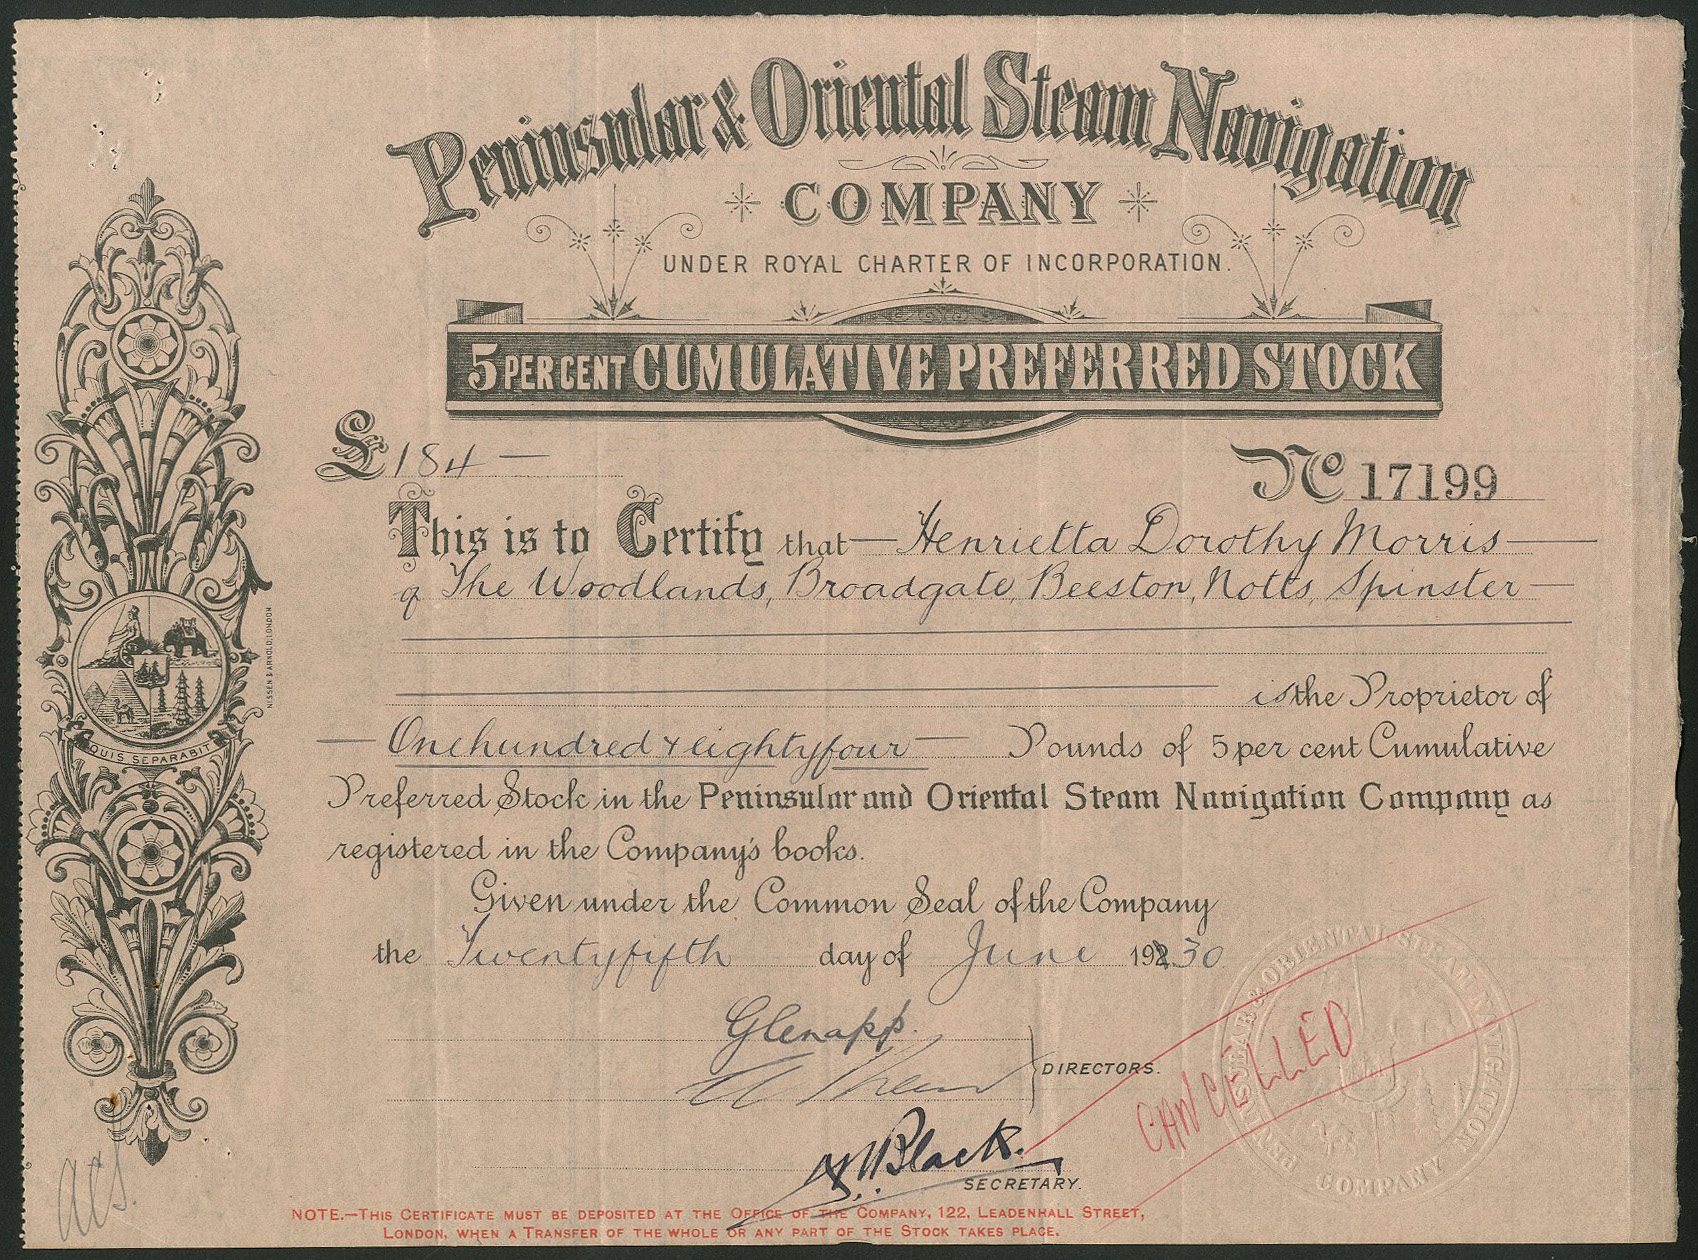 Peninsular & Oriental Steam Navigation
COMPANY
UNDER ROYAL CHARTER OF INCORPORATION.
5 PER CENT CUMULATIVE PREFERRED STOCK
£184 —
No 17199
This is to Certify that — Henrietta Dorothy Morris —
of The Woodlands, Broadgate, Beeston, Notts, Spinster —
is the Proprietor of
— One hundred & eighty four — Pounds of 5 per cent Cumulative
Preferred Stock in the Peninsular and Oriental Steam Navigation Company as
registered in the Company's books.
Given under the Common Seal of the Company
the Twenty fifth day of June 19230
Glenapp.
DIRECTORS.
Black.
SECRETARY.
CANCELLED
PENINSULAR & ORIENTAL STEAM NAVIGATION COMPANY
QUIS SEPARABIT
NISSEN & ARNOLD, LONDON
NOTE.—THIS CERTIFICATE MUST BE DEPOSITED AT THE OFFICE OF THE COMPANY, 122, LEADENHALL STREET,
LONDON, WHEN A TRANSFER OF THE WHOLE OR ANY PART OF THE STOCK TAKES PLACE.